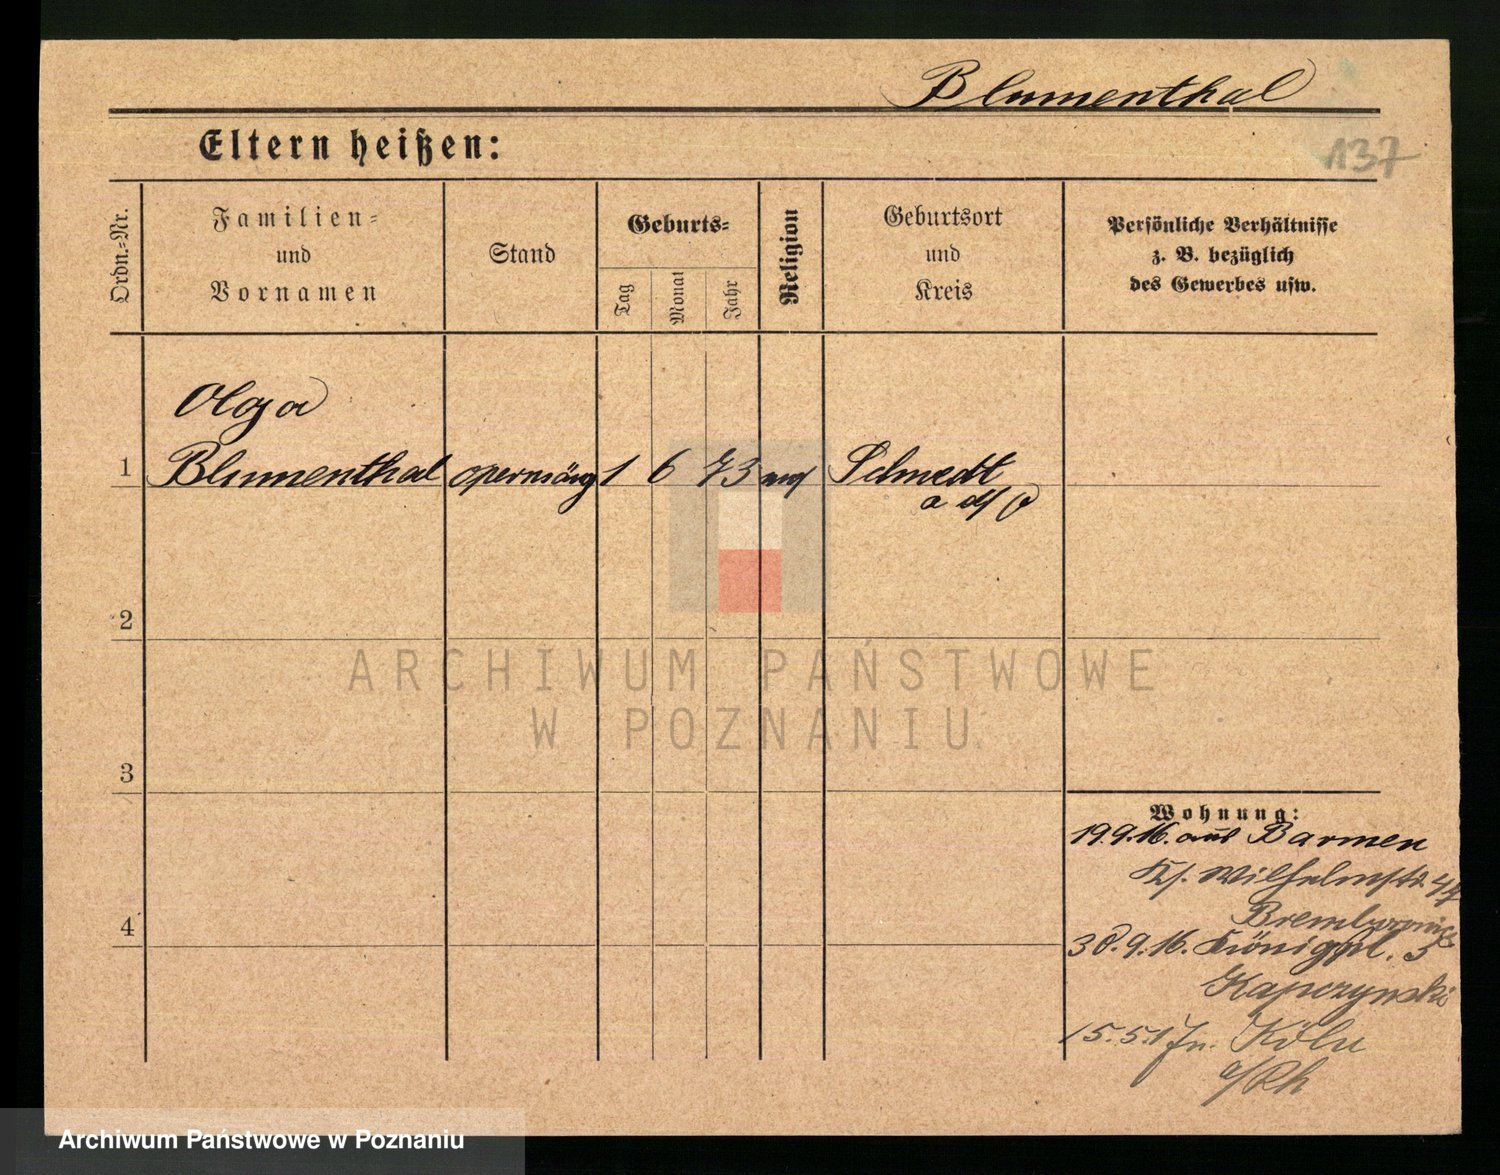 Blumenthal
Eltern heißen:
137
Ordn.=Nr.
Familien=
und
Vornamen
Stand
Geburts=
Tag
Monat
Jahr
Religion
Geburtsort
und
Kreis
Persönliche Verhältnisse
z. B. bezüglich
des Gewerbes usw.
Olga
1 Blumenthal opernsäng 1 6 73
a d/O
2
3
4
ARCHIWUM PAŃSTWOWE
W POZNANIU
Wohnung:
19.9.16. aus Barmen
Wilhelmstr.
30.9.16. Königpl. 3
Kapczynski
15.5.17 n. Köln
a/Rh
Archiwum Państwowe w Poznaniu